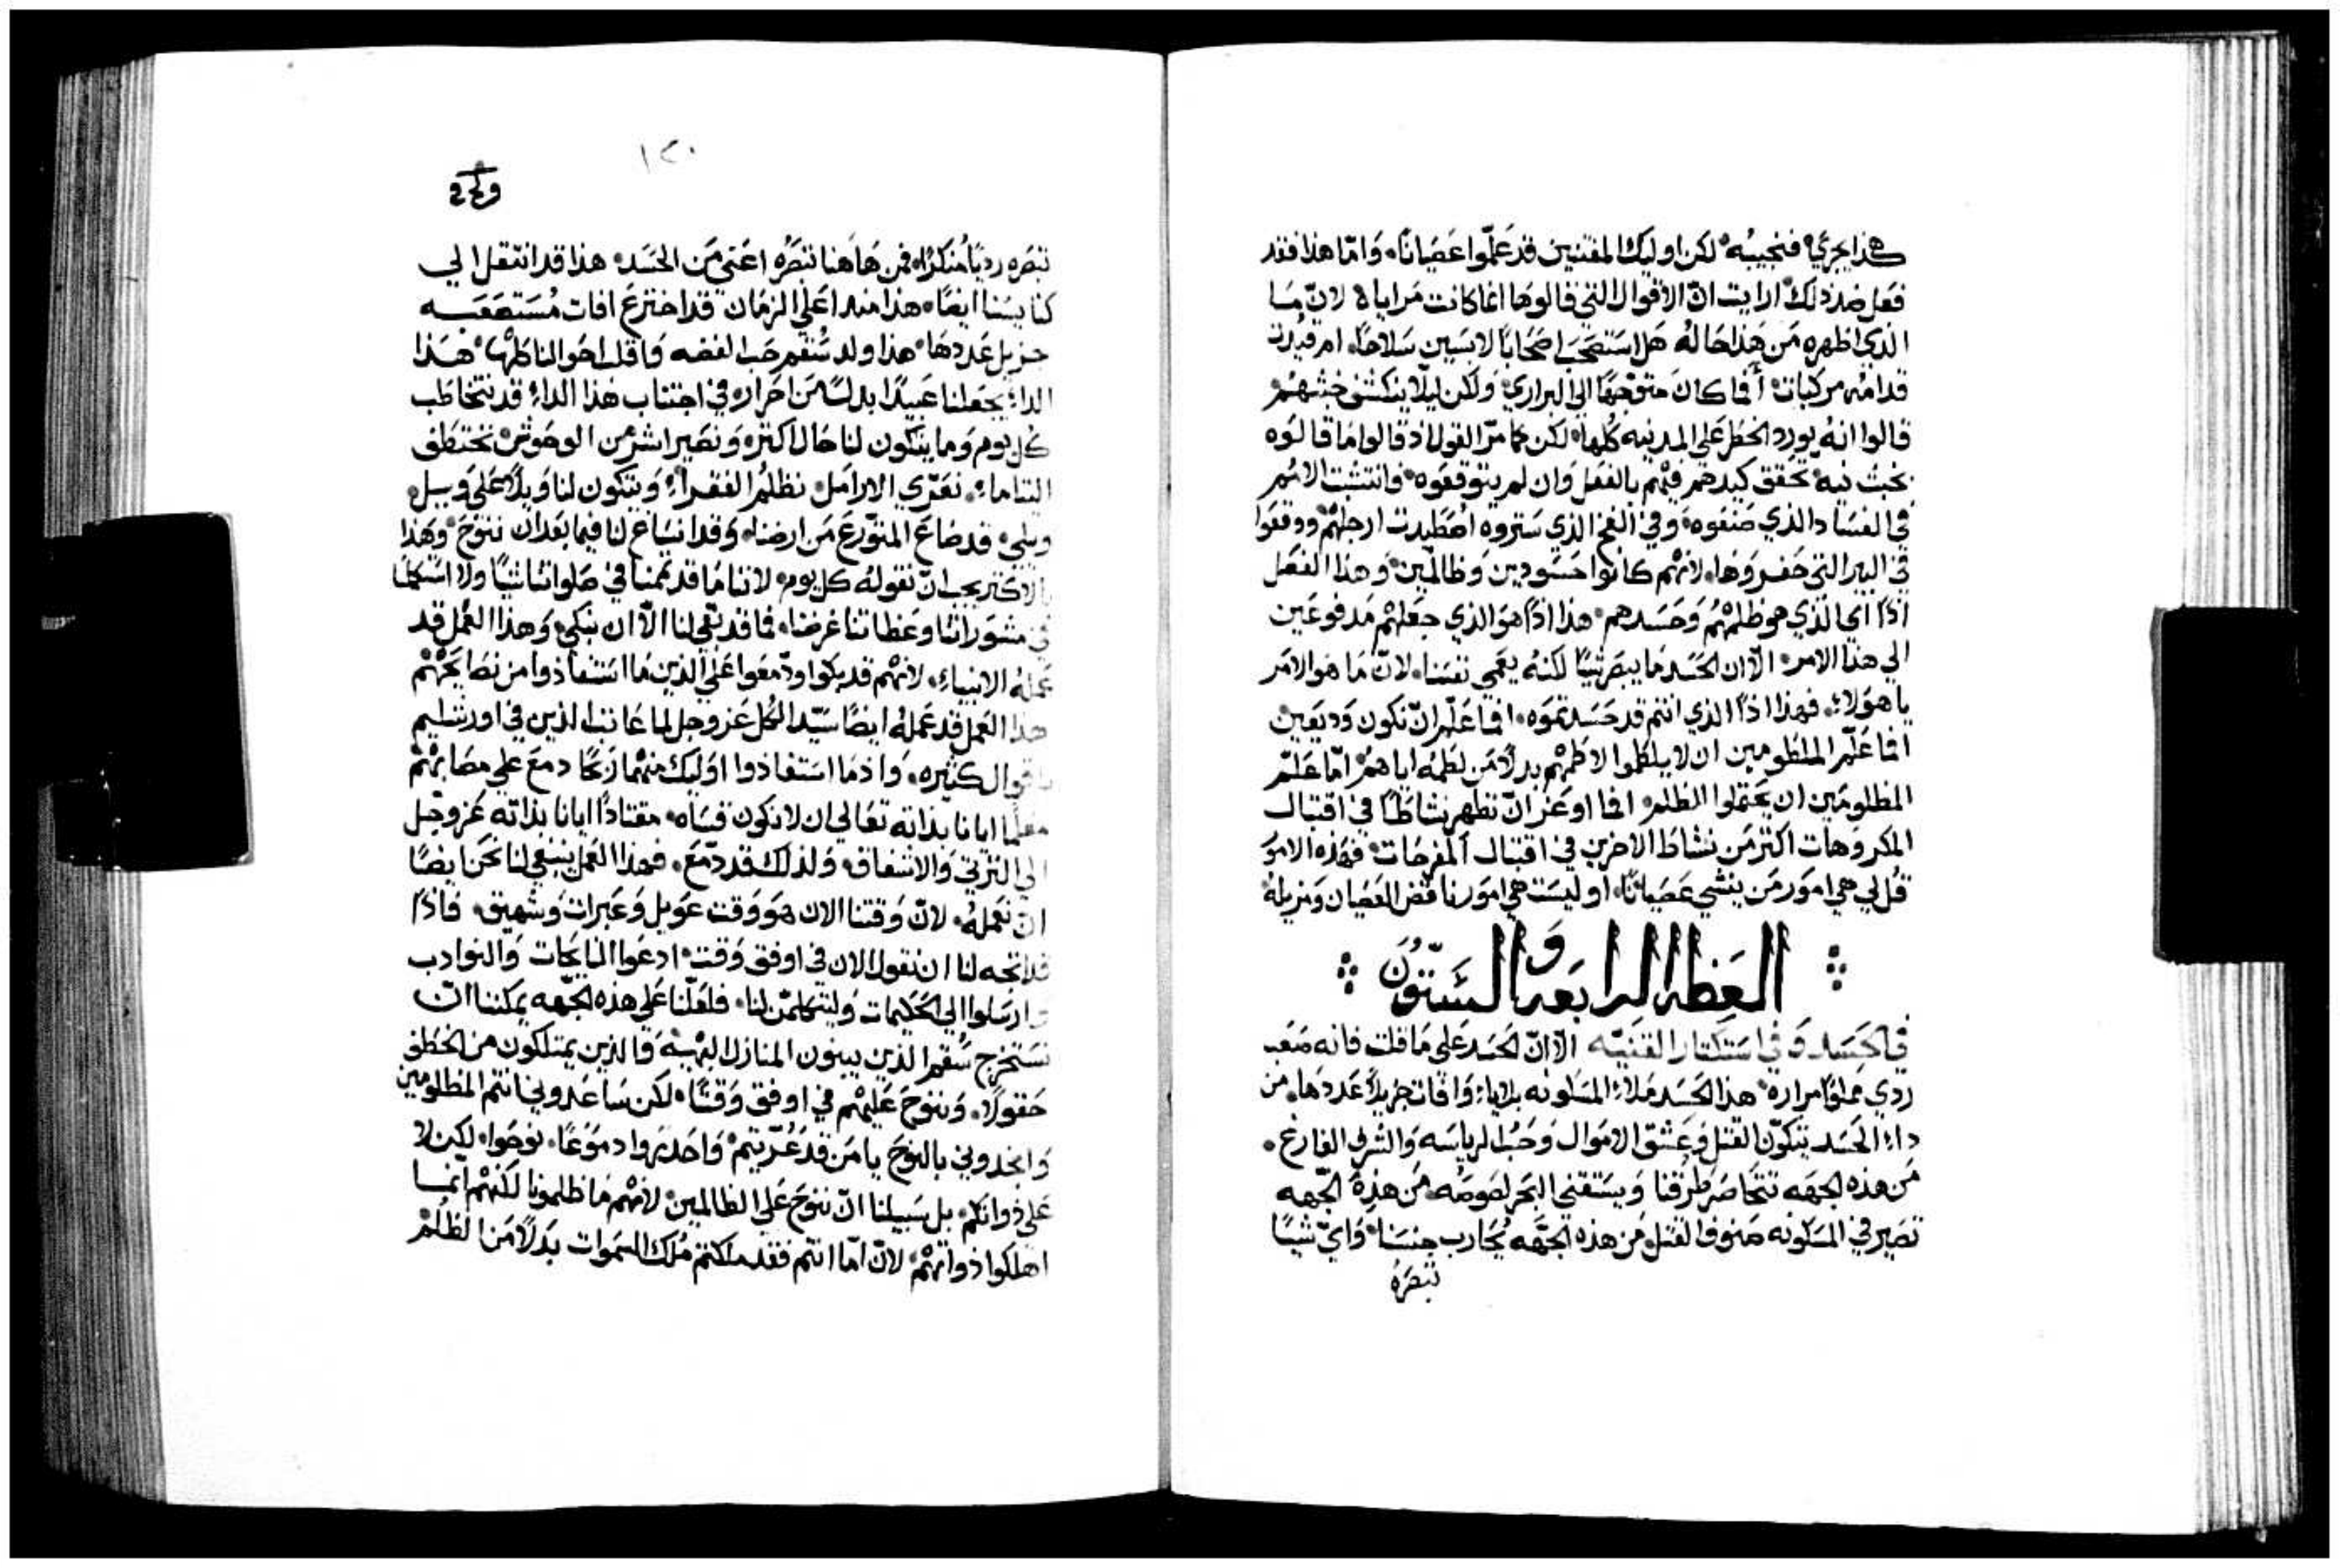 هذا يجري فنجيبه لكن اوليك المفتنين قد عملوا عصيانا وَامّا هذا فقد
فعل ضد ذلك ارايت انّ الاقوال التي قالوها انما كانت مرايا لانّ مَا
الذي اظهره مَن هَذا حاله هَل استصحَب اصحَابًا لابسين سَلاحًا ام قيدت
قدامه مركبات أفما كان متوجّهًا الي البراري ولكن ليلا ينكشف خبثهم
قالوا انهُ يورد الخطر علي المدينه كُلها لكن كما مرّ القول اذ قالوا مَا قالوه
بخبث نيه تحقق كيدهم فيهم بالفعل وَان لم يتوقعوه وانتشبت الامم
في الفسَاد الذي صَنعوه وفي الفخ الذي ستروه اصطيدت ارجلهم ووقعوا
في البير التي حَفروهَا لانهم كانوا حَسودين وَظالمين وَهذا الفعَل
اذًا اي الذي هو ظلمهُم وَحَسدهم هذا اذًا هوَ الذي جعَلهم مَدفوعَين
الي هذا الامر الّا ان الحَسَد مَا يبصر شيًا لكنهُ يعَمي نفسَنا لانّ مَا هوَ الامر
يا هوَلاءِ فهذا اذًا الذي انتم قد حَسَدتموه انما عَلّم ان نكون وَديعَين
انما عَلّم الملطومين ان لا يلكموا لاطمهم بدلًا مَن لطمه اياهم امّا عَلّم
المظلومَين ان يحَتملوا الظلم انما اوعَز انّ نظهر نشاطًا في اقتبال
المكروهات اكثر مَن نشاط الاخرين في اقتبال المفرحَات فهَذه الامور
قُل لي هي امور مَن ينشي عصَيانًا اوليسَت هي امورنا قض العصَيان وَمزيله
العَظه الرابعَه وَالسَتّوُن
في الحَسَد وَفي استكثار القنيَه الّا انّ الحَسَد عَلي مَا قلت فانه صَعَب
ردي مملوًا مراره هذا الحَسَد مَلاءَ المسَكونه بلايا وَافات جزيلًا عَددهَا من
داءِ الحَسَد يتكوّن القتل وَعَشق الاموَال وَحُب الرياسَه وَالشرف الفارغ
مَن هذه الجهَه تتحَاصَر طرقنا وَيستقني البحَر لصوصَه مَن هذِه الجهَه
تصَير في المسَكونه صنوف القتل مَن هذه الجهَه يُحَارب جنسَنا وَايّ شيًا
تبصَرهُ
١٢٠
تبصَره رديًا مُنكرًا فمن هَاهنا تبصَرُه اعَني مَن الحَسَد هذا قد انتقل الي
كنايسَنا ايضًا هذا منذ اعَلي الزمَان قد اخترع افات مُسَتصَعَبه
جزيل عَددهَا هذا ولد سُقم حَب الفضه هَذا
الداءِ يجَعلنا عَبيدًا بدلًا مَن احَرار في اجتناب هذا الداءِ قد نتخاطَب
كُل يوم وَما يتكون لنا حَال اكثر وَنصَير اشر من الوحَوش نختطف
اليتاما نعَرّي الارامَل نظلم الفقرآءِ وَيتكون لنا وَيلًا عَلي وَيل
ويلي قد ضاعَ المتوّرعَ مَن ارضنا وَقد انسَاغ لنا فيما بَعَد ان ننوح وَهَذا
الاكثر يجب انّ نقوله كل يوم لاننا مَا قد تممنا في صَلواتنا شيًا ولا استكملنا
في مشوَراتنا وعَظاتنا غرضنا فما قد بَقي لنا الّا ان نبكي وَهذا العَمل قد
عَملهُ الانبياءِ لانهم قد بكوا ودّمعَوا عَلي الذين مَا استفاذوا من نصَايحَهم
هذا العَمل قد عَملهُ ايضًا سَيّد الكُل عَز وجل لما عَاتب الذين في اورشليم
باقوال كثيره وَاذ مَا استفاذوا اوليك منهما ربحًا دمعَ علي مصَايبهم
معَلّمًا ايانا بذاته تعَالي ان لا نكون قسَاه مقتادًا ايانا بذاته عَز وجَل
الي الترثي وَالاشفاق وَلذلك قد دمّعَ فهذا العَمل ينبغي لنا نحَن ايضًا
انّ نعَملهُ لانّ وَقتنا الان هوَ وَقت عَويل وَعَبرات وَشهيق فاذًا
قد اتجه لنا ان نقول الان في اوفق وَقت ادعَوا النايحَات وَالنوادب
وَارسَلوا الي الحَكيمات وَليتكلمّن لنا فلعَلّنا عَلي هذه الجهَه يمكننا انّ
نسَتخرج سُقم الذين يبنون المنازل البهيه وَالذين يمتلكون من الخطف
حَقولًا وَننوحَ عَليهم في اوفق وَقتًا لكن سَاعَدوني انتم المظلومين
وَانجدوني بالنوحَ يا مَن قد عُرّيتم وَاحَدَروا دموَعًا نوحَوا لكن لا
عَلي ذواتكم بل سَبيلنا انّ ننوحَ عَلي الظالمين لانهم مَا ظلمونا لكنهم انما
اهلكوا ذواتهم لانّ امّا انتم فقد ملكتم مُلك السمَوات بَدلًا مَن الظلم